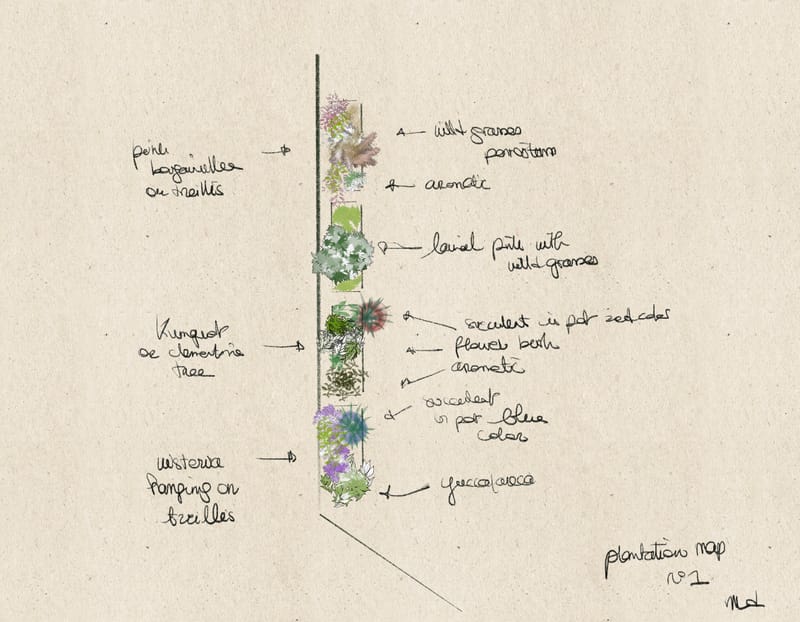 pink
bougainvillea
on treillis
wild grasses
aromatic
laurel pink with
wild grasses
Kumquat
or clementine
tree
succulent in pot red color
flower bush
aromatic
succulent
in pot blue
color
wisteria
hanging on
treilles
yucca/
plantation map
n°1